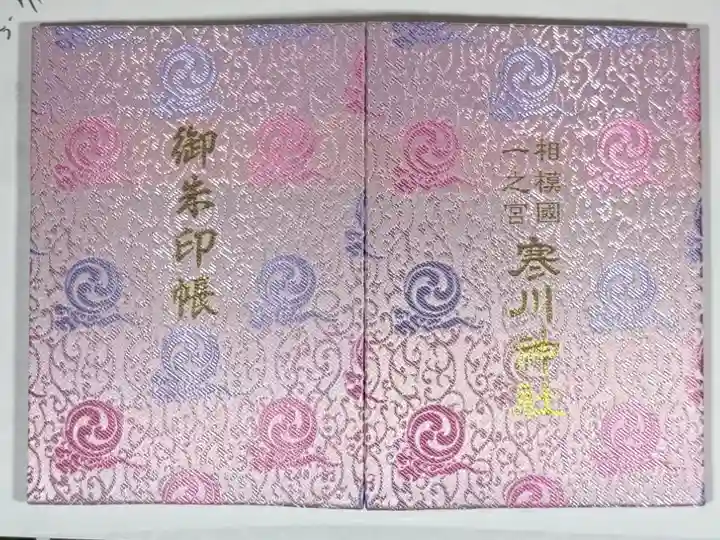 御朱印帳
相模國
一之宮
寒川神社